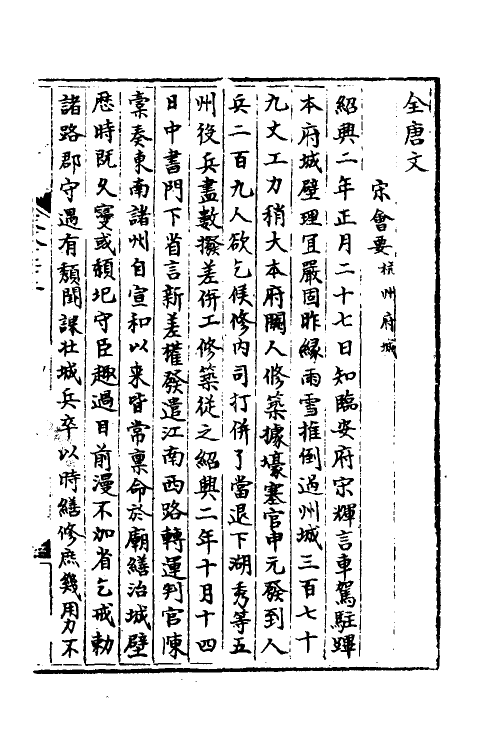 全唐文
宋會要杭州府城
紹興二年正月二十七日知臨安府宋輝言車駕駐蹕
本府城壁理宜嚴固昨緣雨雪摧倒過州城三百七十
九丈工力稍大本府闕人修築據壕寨官申元發到人
兵二百九人欲乞候修內司打併了當退下湖秀等五
州役兵盡數撥差併工修築從之紹興二年十月十四
日中書門下省言新差權發遣江南西路轉運判官陳
槖奏東南諸州自宣和以来皆常稟命於廟繕治城壁
歷時旣久寖或頹圮守臣趣過目前漫不加省乞戒勅
諸路郡守遇有頹闕課壯城兵卒以時繕修庶幾用力不